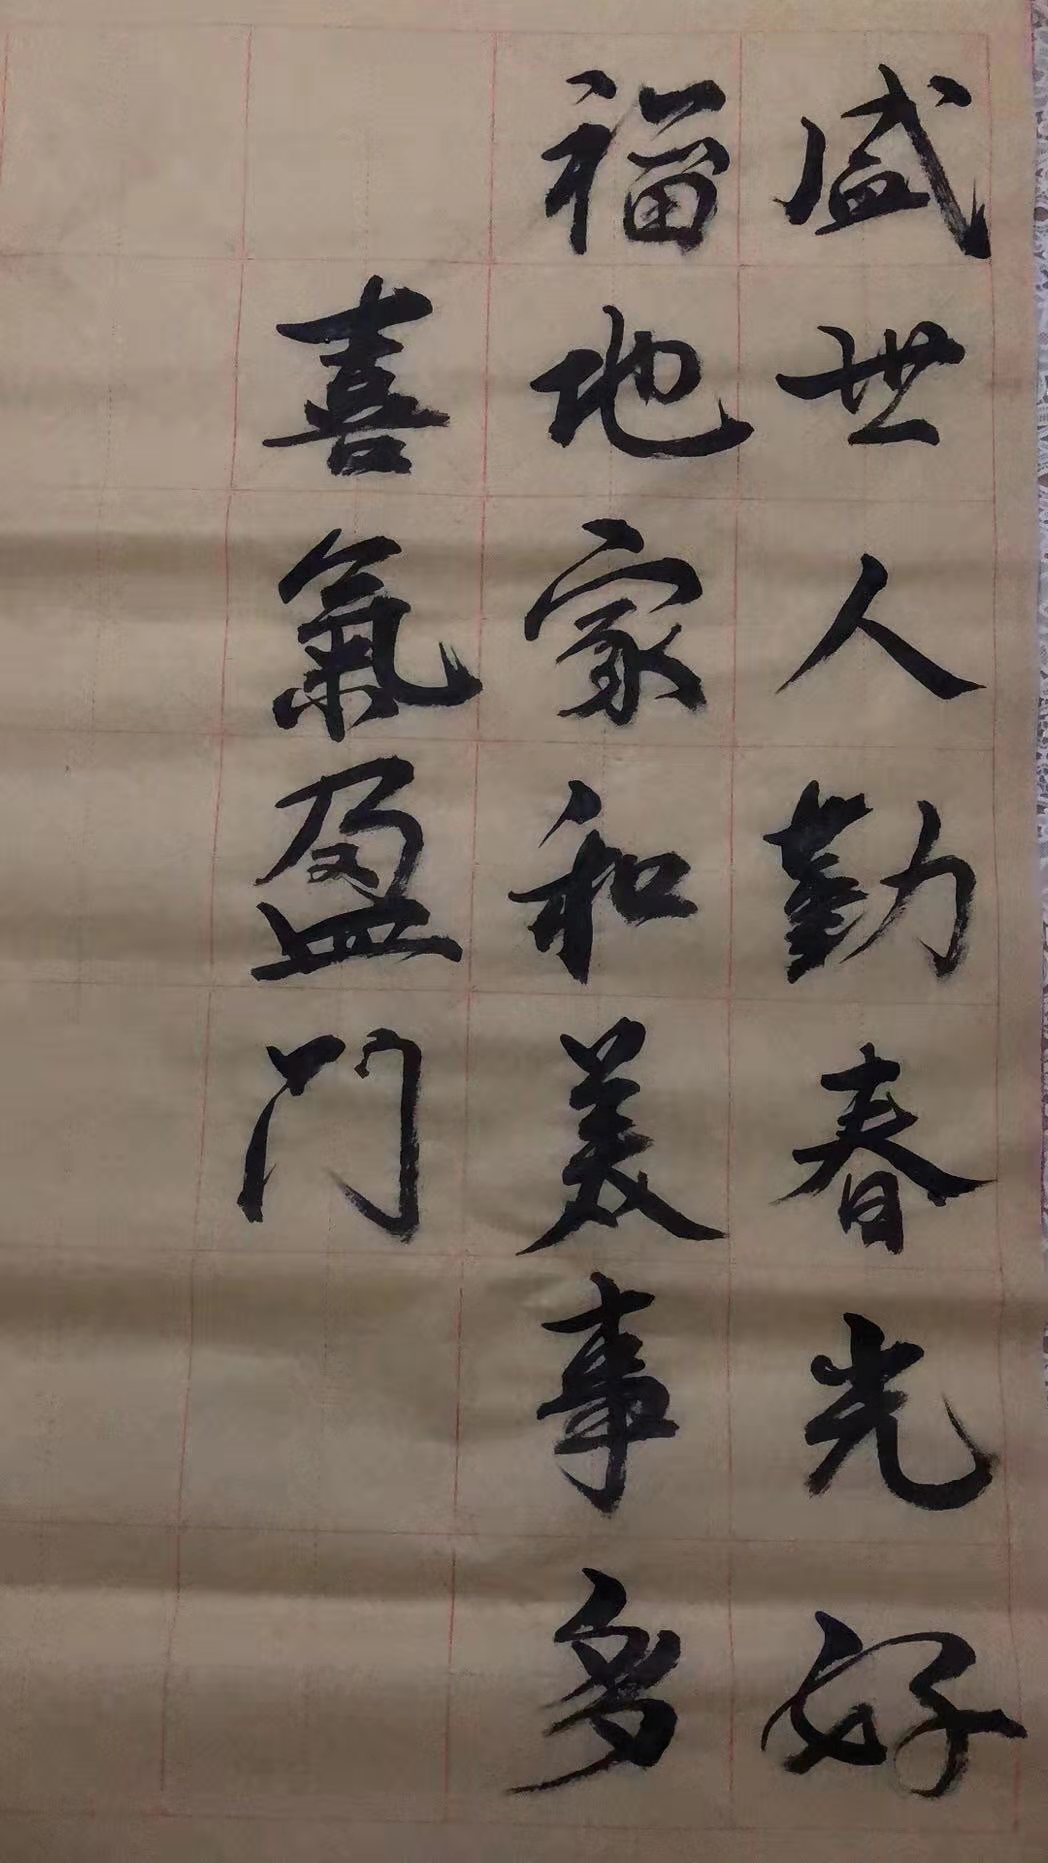 盛世人勤春光好
福地家和美事多
喜氣盈门